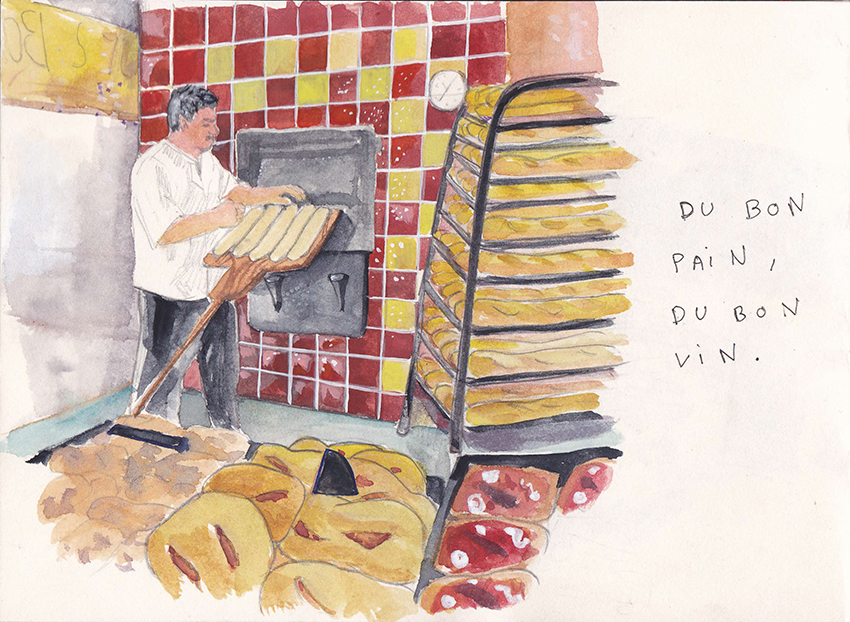 DU BON
PAiN,
DU BON
ViN.